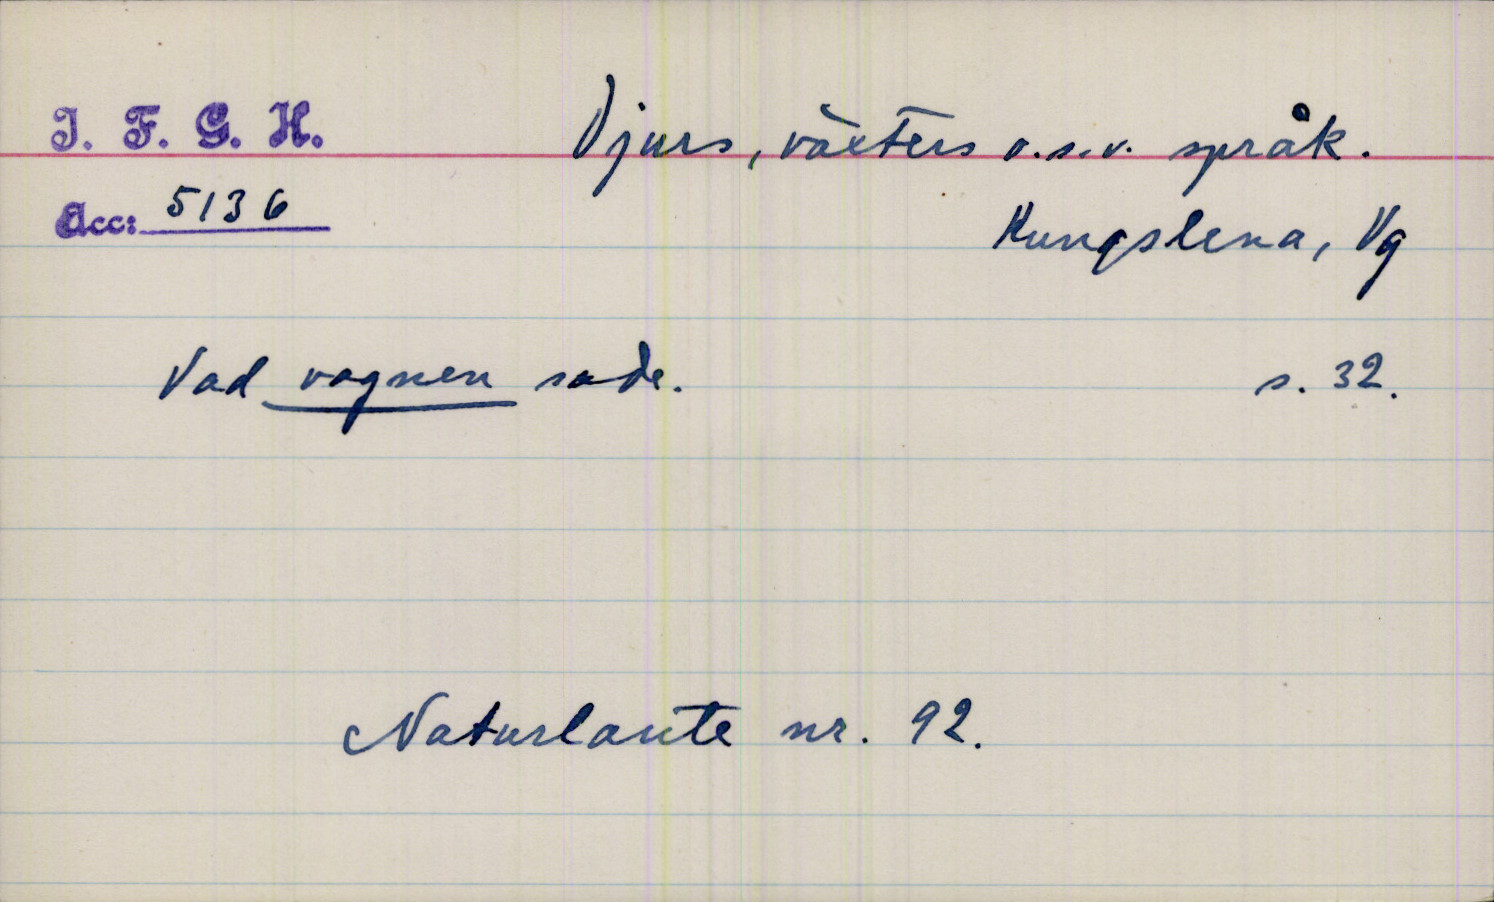 I. F. G. H.
Djurs, växters o.s.v. språk.
Acc: 5136
Kungslena, Vg
Vad vagnen sade. s. 32.
Naturlaute nr. 92.